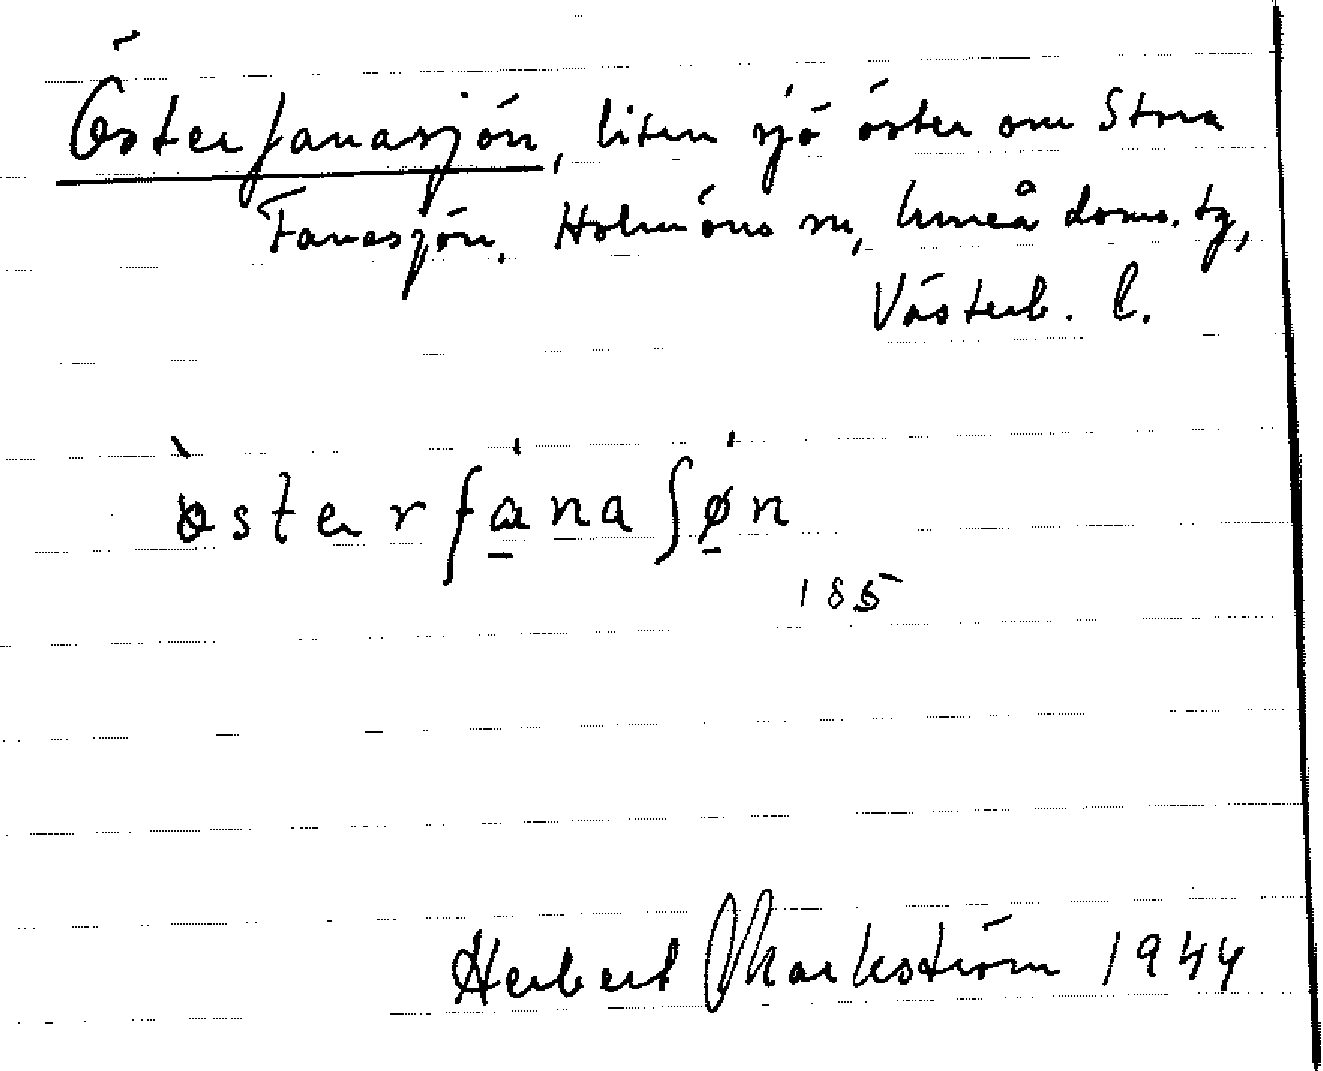 Österfanasjön, liten sjö öster om Stora
Fanasjön, Holmöns sn, Umeå doms. tg,
Västerb. l.
österfànaʃøn
185
Herbert Markström 1944